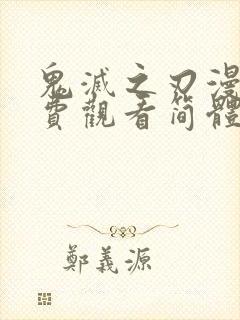 鬼滅之刃漫
費觀看簡體
鄭義源